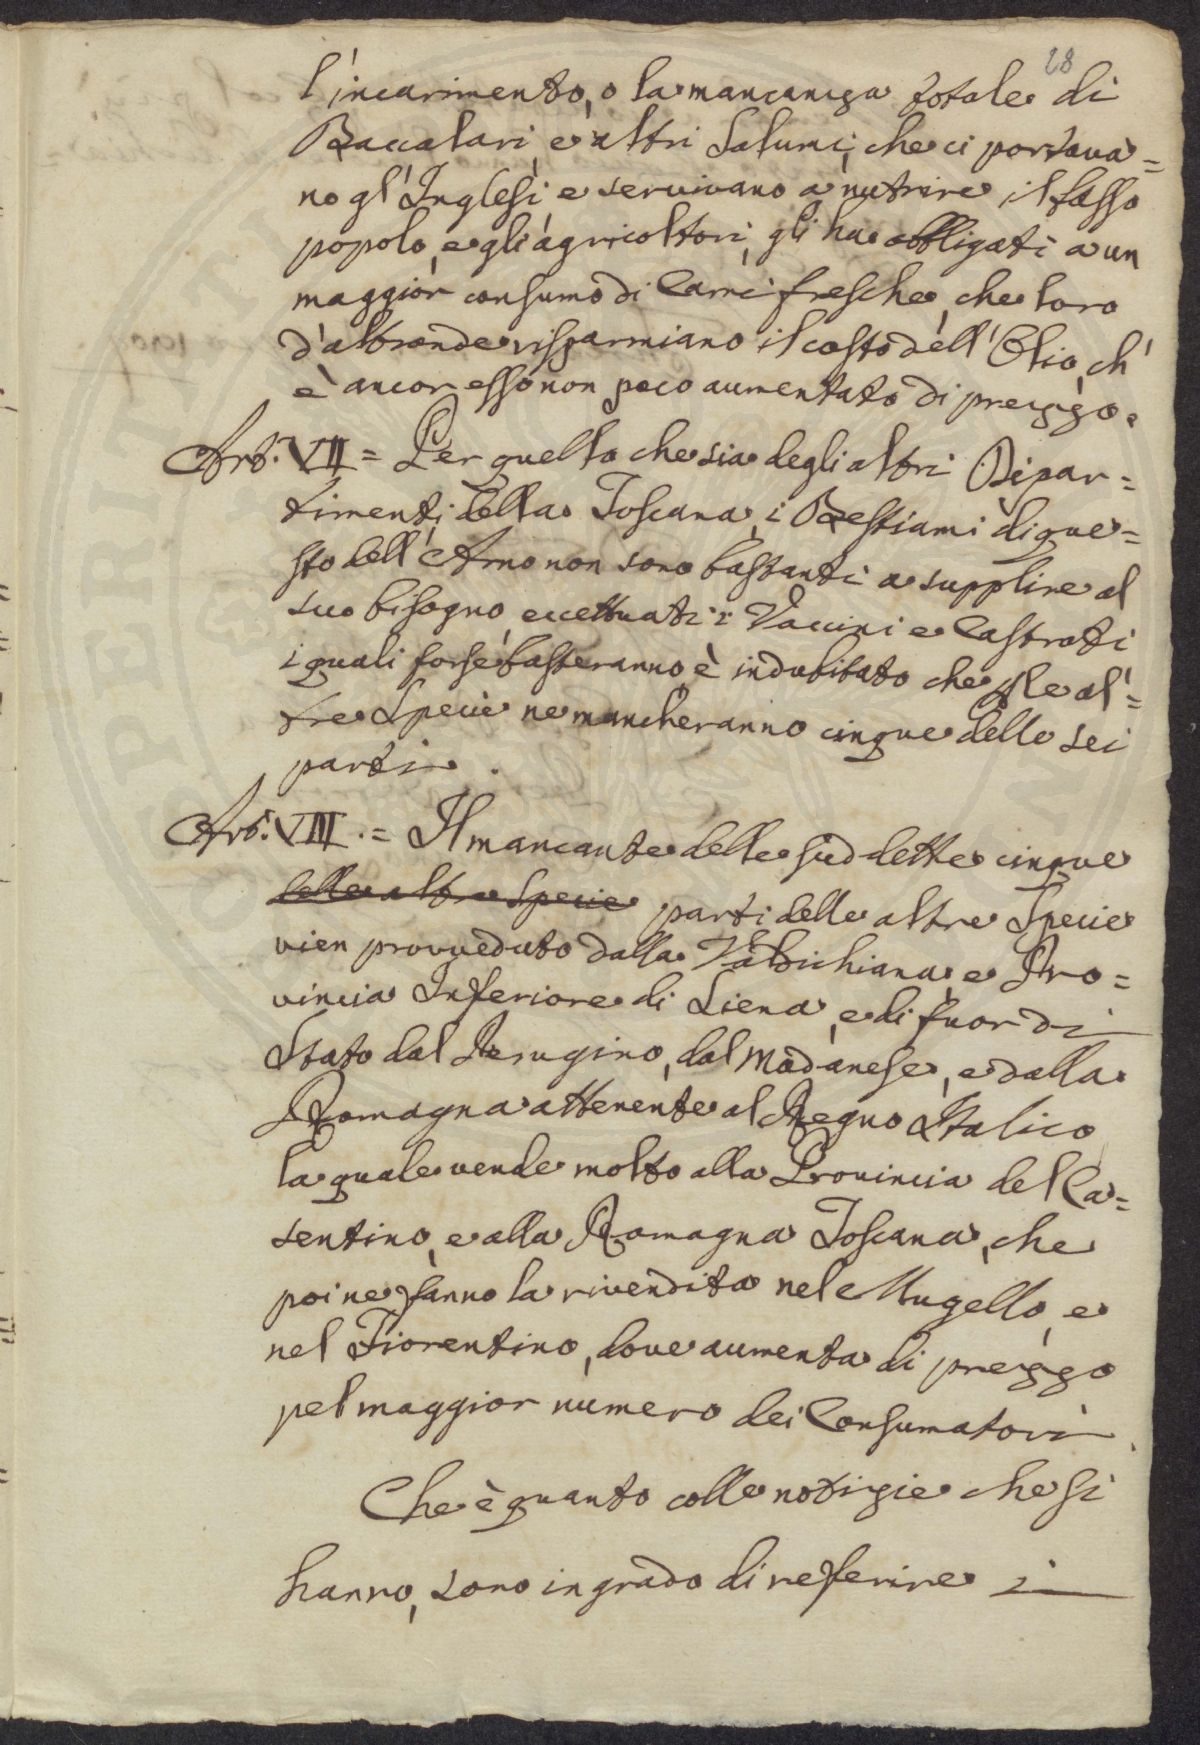 28
l'incarimento, o la mancanza totale di
Baccalari, e altri Salumi, che ci portava=
no gl'Inglesi e servivano a nutrire il basso
popolo, e gli agricoltori, gli ha obbligati a un
maggior consumo di Carni fresche, che loro
d'altronde risparmiano il costo dell'Olio, ch'
è ancor esso non poco aumentato di prezzo.
Art. VII = Per quello che sia degli altri Dipar=
timenti della Toscana, i Bestiami di que=
sto dell'Arno non sono bastanti a supplire al
suo bisogno, eccettuati i Vaccini e Castrati
i quali forse basteranno, è indubitato che le al=
tre Specie ne mancheranno cinque delle sei
parti.
Art. VIII. = Il mancante delle suddette cinque
delle altre Specie parti delle altre Specie
vien provveduto dalla Valdichiana, e Pro=
vincia Inferiore di Siena, e di fuor di
Stato dal Perugino, dal Modanese, e dalla
Romagna attenente al Regno Italico
la quale vende molto alla Provincia del Ca=
sentino, e alla Romagna Toscana, che
poi ne fanno la rivendita nel Mugello, e
nel Fiorentino, dove aumenta di prezzo
pel maggior numero dei Consumatori.
Che è quanto colle notizie che si
hanno, sono in grado di referire